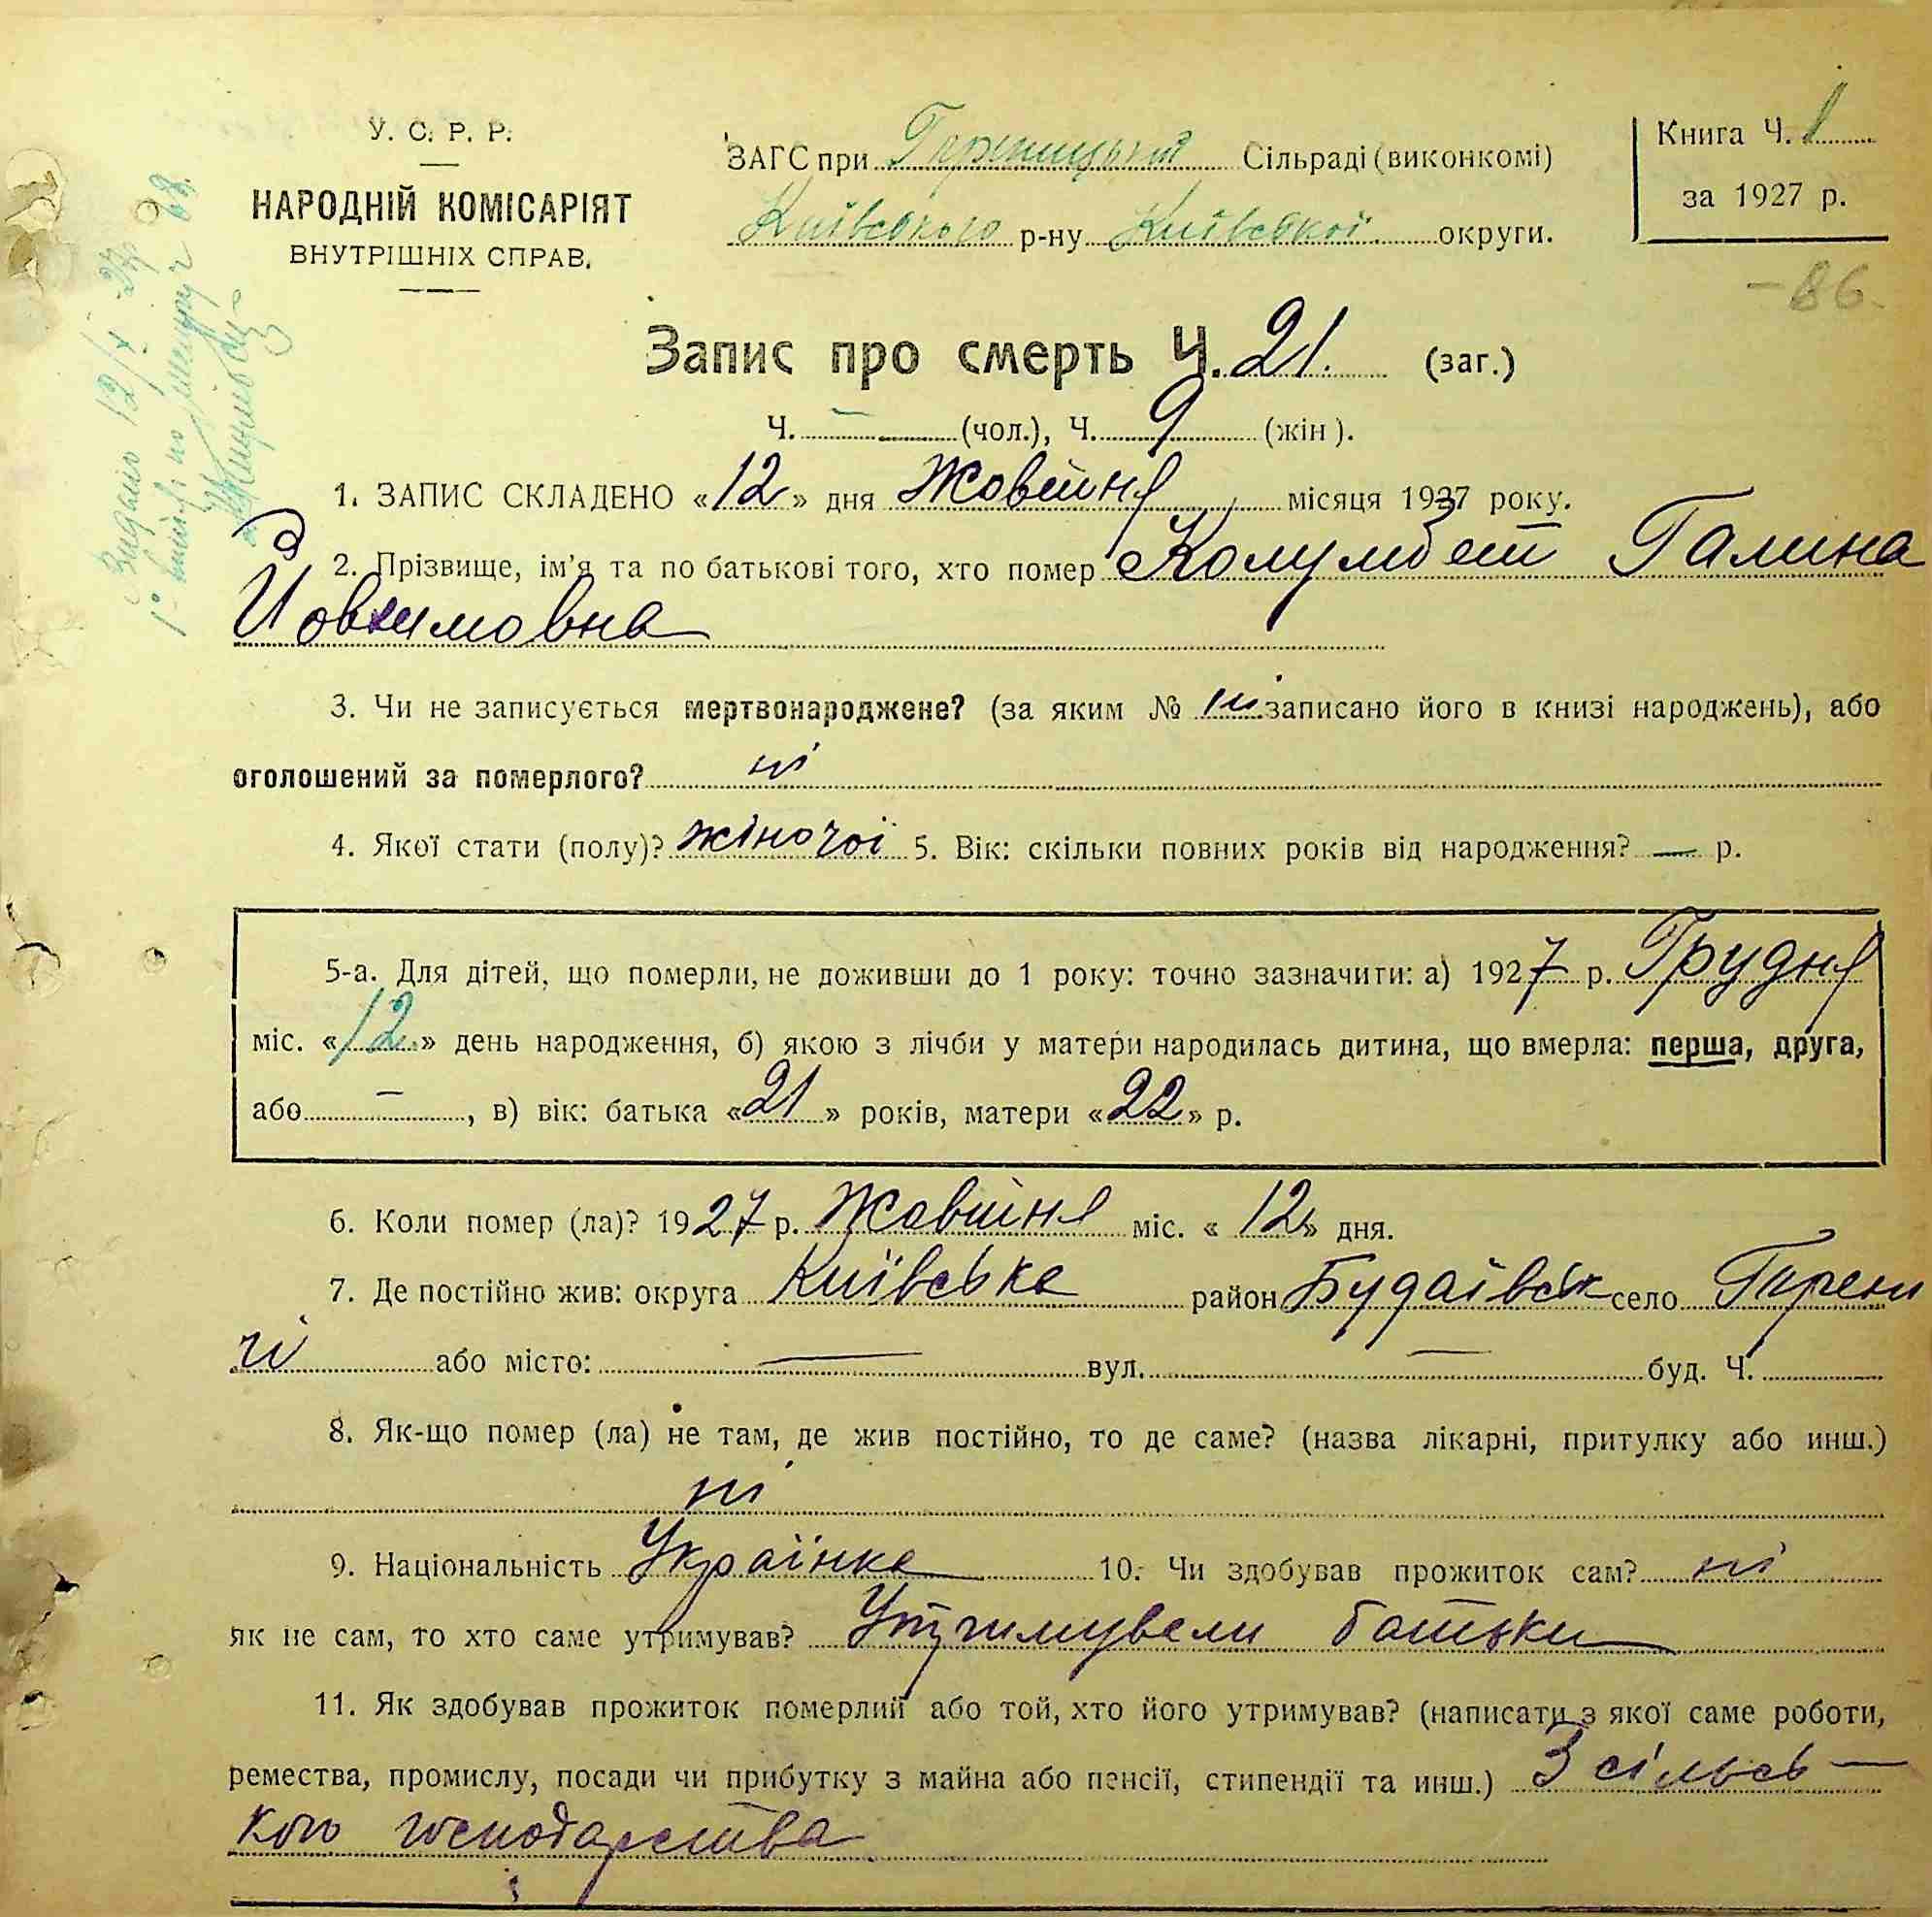 У. С. Р. Р.
НАРОДНІЙ КОМІСАРІЯТ
ВНУТРІШНІХ СПРАВ.
ЗАГС при Гореницький Сільраді (виконкомі)
Київського р-ну Київської округи.
Книга Ч. 1
за 1927 р.
- 86
Запис про смерть Ч. 21. (заг.)
Ч. — (чол.), Ч. 9 (жін).
1. ЗАПИС СКЛАДЕНО «12» дня Жовтня місяця 1927 року.
2. Прізвище, ім'я та по батькові того, хто помер Колумбет Галина
Йовхимовна
3. Чи не записується мертвонароджене? (за яким № ні записано його в книзі народжень), або
оголошений за померлого? ні
4. Якої стати (полу)? жіночоі 5. Вік: скільки повних років від народження? — р.
5-а. Для дітей, що померли, не доживши до 1 року: точно зазначити: а) 1927 р. Грудня
міс. «12» день народження, б) якою з лічби у матери народилась дитина, що вмерла: перша, друга,
або —, в) вік: батька «21» років, матери «22» р.
6. Коли помер (ла)? 1927 р. Жовтня міс. «12» дня.
7. Де постійно жив: округа Київська район Будаівськ село Горени
чі або місто: — вул. — буд. Ч.
8. Як-що помер (ла) не там, де жив постійно, то де саме? (назва лікарні, притулку або инш.)
ні
9. Національність Украінка 10. Чи здобував прожиток сам? ні
як не сам, то хто саме утримував? Утримували батьки
11. Як здобував прожиток померлий або той, хто його утримував? (написати з якої саме роботи,
ремества, промислу, посади чи прибутку з майна або пенсії, стипендії та инш.) З сільсь-
кого господарства